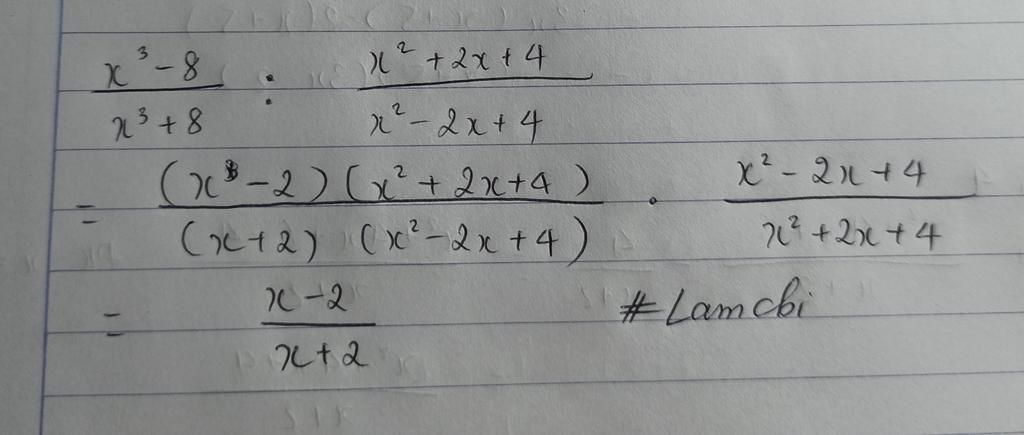 x³-8 / x³+8 : x²+2x+4 / x²-2x+4
= (x-2)(x²+2x+4) / (x+2)(x²-2x+4) . x²-2x+4 / x²+2x+4
= x-2 / x+2 #Lamcbi